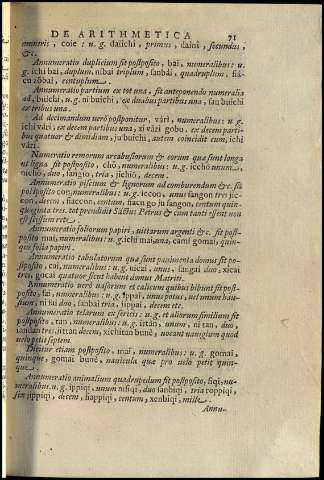 DE ARITHMETICA 71
numeris, coie: u. g. daiichi, primus, daini, secundus,
&c.
Annumeratio duplicium sit postposito, bai, numeralibus: u.
g. ichi bai, duplum, nibai triplum, sanbái, quadruplum, fiácu
zôbai, centuplum.
Annumeratio partium ex tot una, sit anteponendo numeralia
ad, buichi: u. g. ni buichi, ex duabus partibus una, san buichi
ex tribus una.
Ad decimandum uerò postponitur, vári, numeralibus: u. g.
ichi vári, ex decem partibus una, xi vári gobu, ex decem partibus
quatuor & dimidium, ju buichi, autem coincidit cum, ichi
vári.
Numeratio remorum arcabusiorum & eorum quæ sunt longa
ut ligna sit postposito, chŏ, numeralibus: u. g. icchŏ unum,
nichŏ, duo, sangio, tria, jichiŏ, decem.
Annumeratio piscium & lignorum ad comburendum &c. sit
postposito con, numeralibus: u. g. iccon, unus sangon tres jiccon,
decem, fiaccon, centum, fiacu go ju sangon, centum quinquaginta
tres. tot prendidit Sãctus Petrus & cum tanti essent non
est scissum rete.
Annumeratio foliorum papiri, uittarum argenti &c. sit postposito
mai, numeralibus: u. g. ichi mai, una, cami gomai, quinque
folia papiri.
Annumeratio tabulatorum quæ sunt pauimenta domus sit postposito,
cai, numeralibus: u. g. nicai, unus, sangai duo, xicai
tres,
Annumeratio uerò uasorum et calicum quibus bibint sit postposito,
fai, numeralibus: u. g. ippai, unus potus, uel unum
ni fai duo, sanbai tria, jippai, decem etc.
Annumeratio telarum ex sericis: u. g. et aliorum similium sit
postposito, tan, numeralibus: u. g. ittán, unum, ni tan, duo,
sandan tres, jittan decem,
uelo petit septem
Dicitur etiam postposito, mai, numeralibus: u. g. gomai,
quinque, gomai bune, nauicula quæ pro uelo petit quinque.
Annumeratio animalium quadrupedum sit postposito, fiqi, numeralibus
u. g. ippiqi, unum nifiqi, duo sanbiqi, tria roppiqi,
sex jippiqi, decem, fiappiqi, centum, xenbiqi, mille.
Annu-